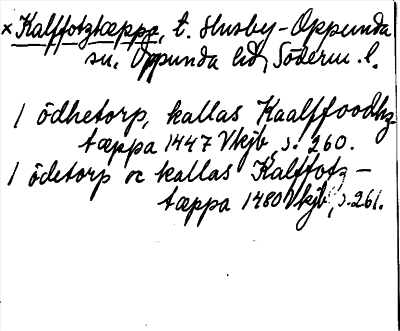 × Kalffotztæppa, t. Husby-Oppunda
sn. Oppunda hd, Söderm. l.
1 ödhetorp, kallas Kaalffoodhz
tæppa 1447 Vkjb, s. 260.
1 ödetorp oc kallas Kalffotz-
tæppa 1480 Vkjb, s. 261.